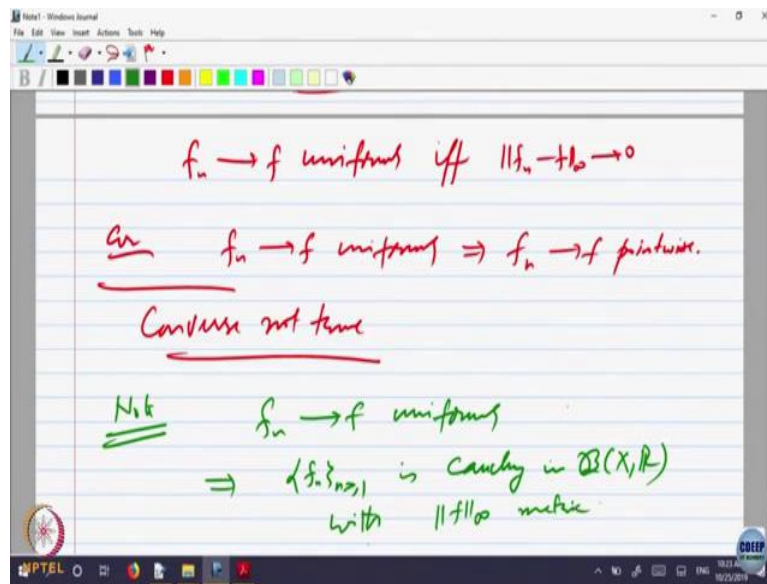 Note1 - Windows Journal
File Edit View Insert Actions Tools Help
B I
fₙ → f uniformly iff ||fₙ - f||∞ → 0
Cor fₙ → f uniformly ⇒ fₙ → f pointwise.
Converse not true
Note fₙ → f uniformly
⇒ {fₙ}ₙ≥1 is Cauchy in B(X, R)
with ||f||∞ metric
NPTEL
CDEEP
ENG
10/25/2019